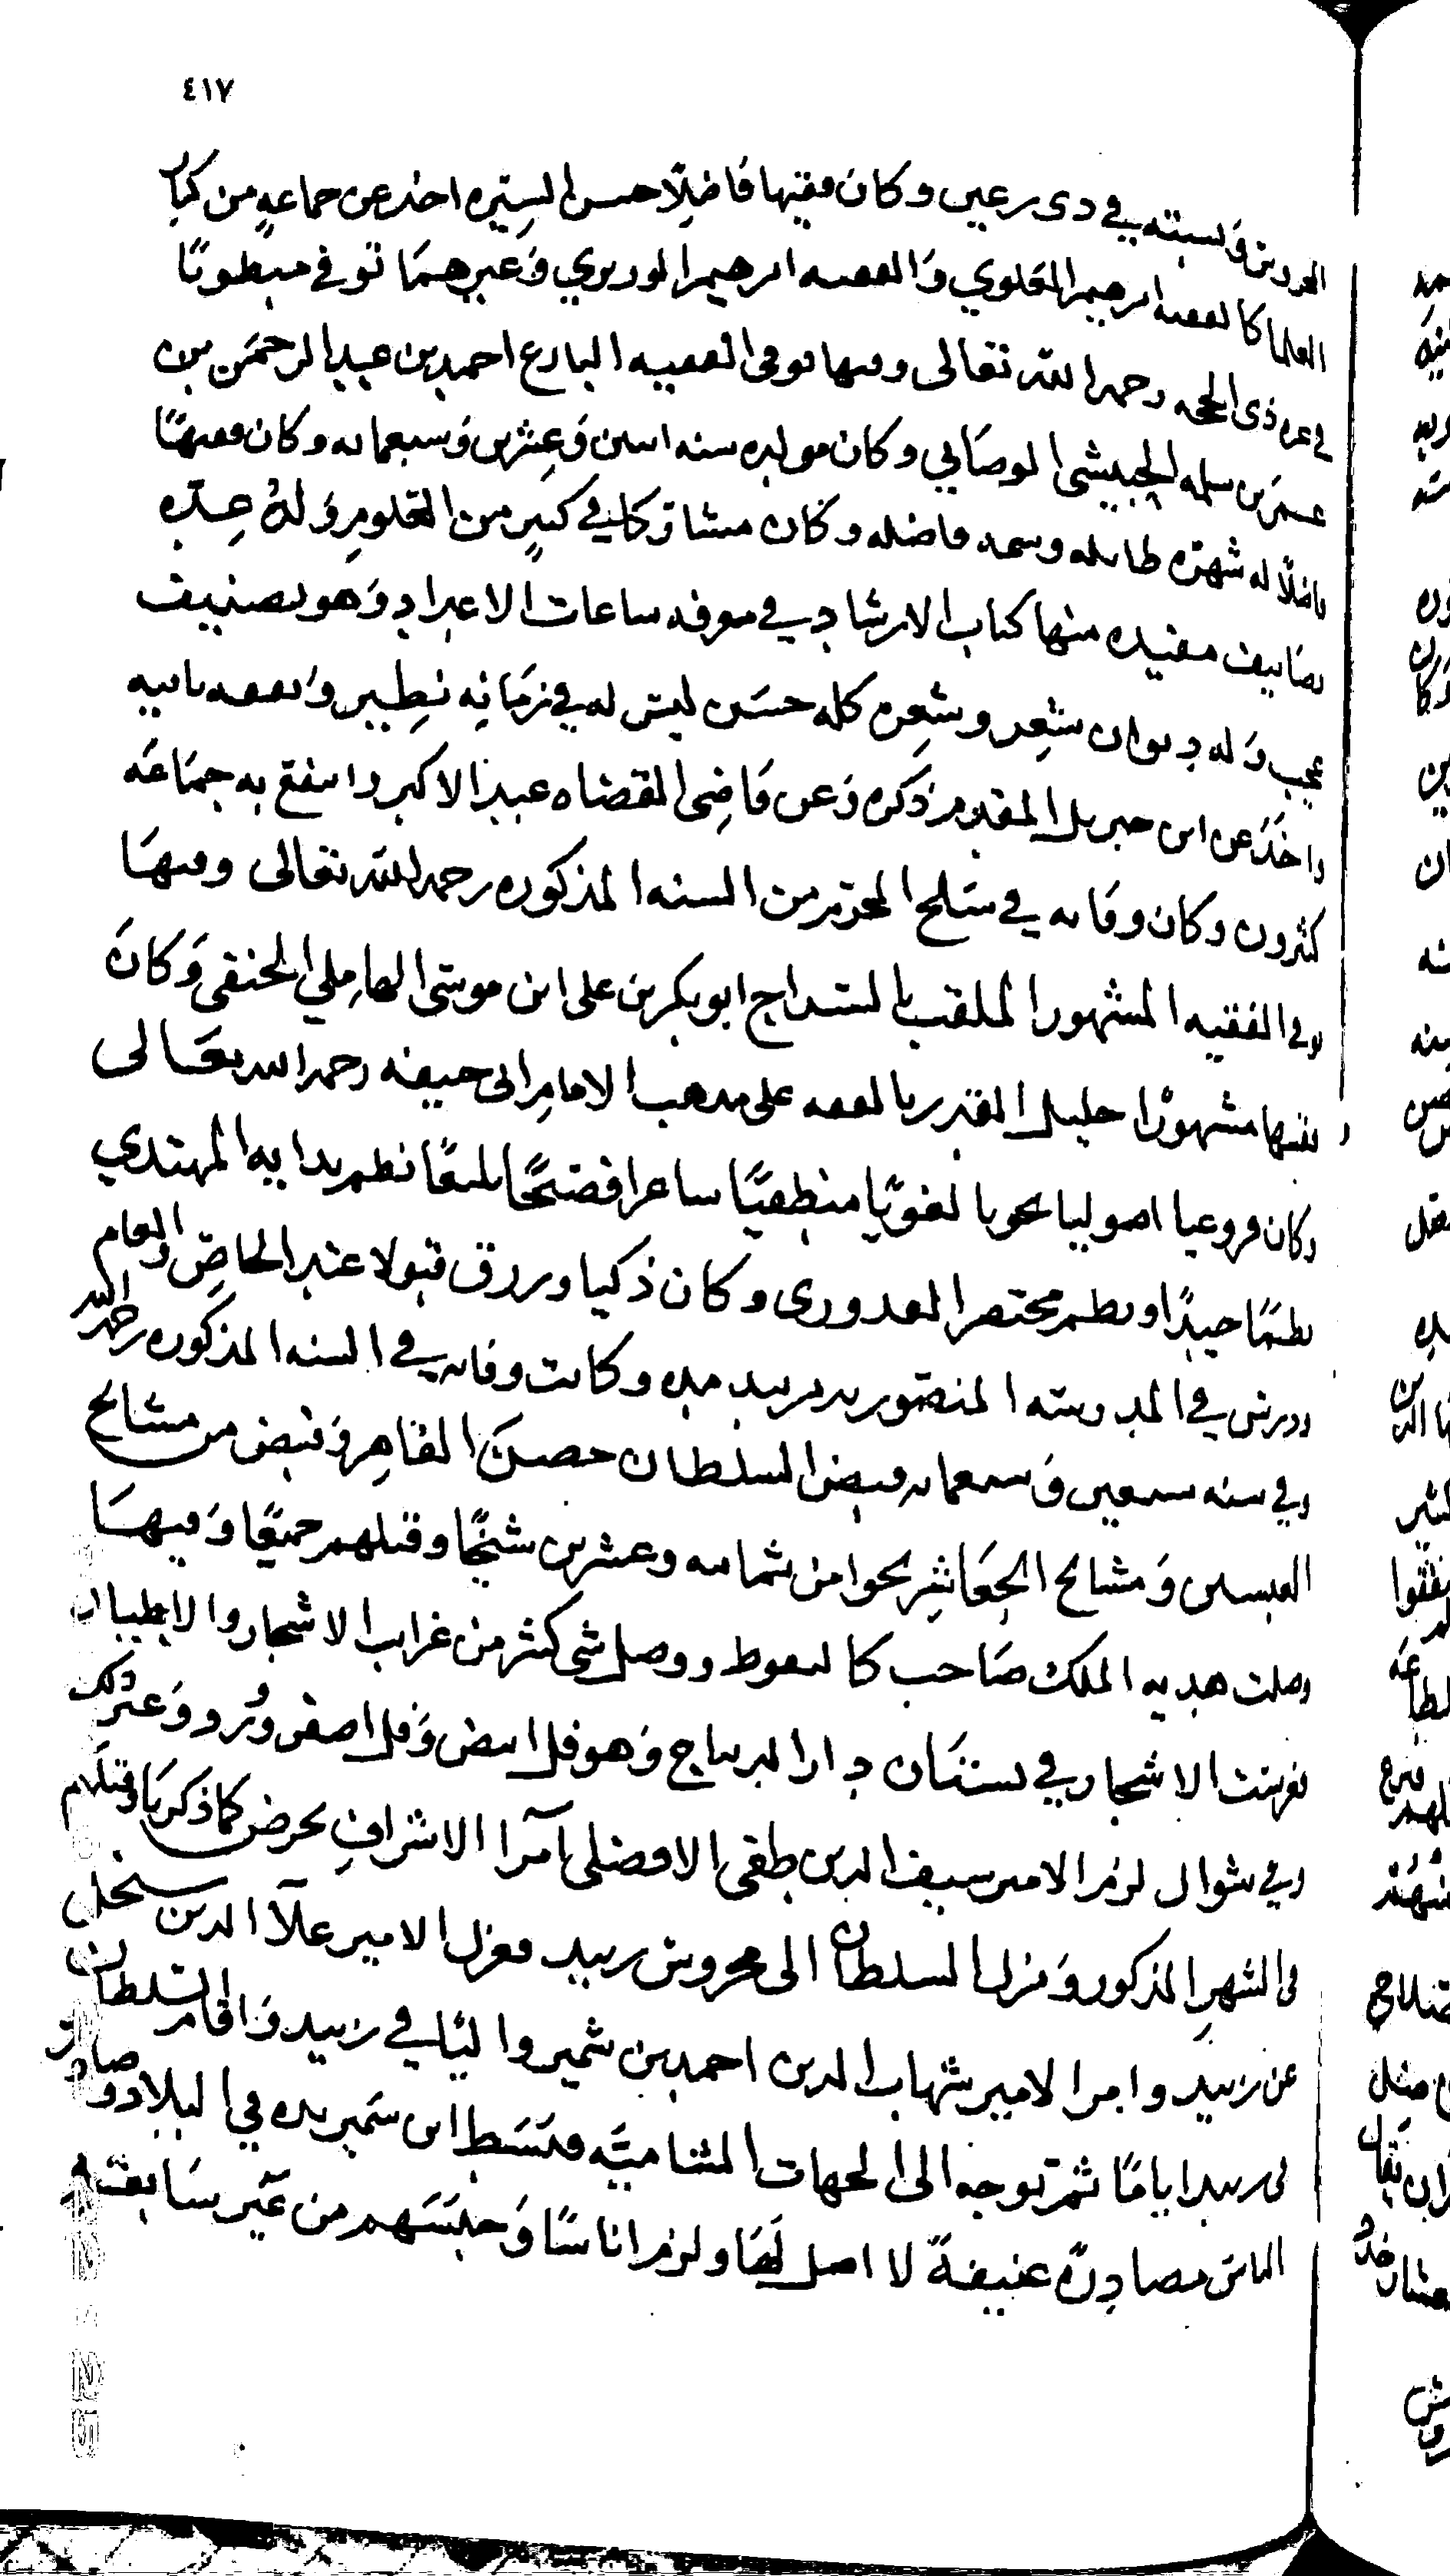 ٤١٧
ونسبته في ذي رعين وكان فقيها فاضلا حسن السيرة اخذ عن جماعة من كبار
العلما كالفقيه ابرهيم العلوي والفقيه ابرهيم الوزيري وغيرهما توفي مبطونا
في غرة ذي الحجه رحمه الله تعالى وفيها توفي الفقيه البارع احمد بن عبد الرحمن بن
عمر بن سلمه الحبيشي الوصابي وكان مولده سنه اثنين وعشرين وسبعمائه وكان فقيها
فاضلا له شهرة طائله وسمه فاضله وكان مشاركا في كثير من العلوم وله عدة
تصانيف مفيده منها كتاب الارشاد في معرفه ساعات الاعداد وهو تصنيف
عجيب وله ديوان شعر وشعره كله حسن ليس له في زمانه نظير وتفقه بابيه
واخذ عن ابن جبريل المقدم ذكره وعن قاضي القضاه عبد الاكبر وانتفع به جماعه
كثرون وكان وفاته في سلخ المحرم من السنه المذكوره رحمه الله تعالى وفيها
توفي الفقيه المشهور الملقب بالسراج ابو بكر بن علي ابن موسى الهاملي الحنفي وكان
فقيها مشهورا جليل القدر بالفقه على مذهب الامام ابي حنيفه رحمه الله تعالى
وكان فروعيا اصوليا نحويا لغويا منطقيا شاعرا فصيحا بليغا نظم بدايه المهتدي
نظما جيدا ونظم مختصر القدوري وكان ذكيا ورزق قبولا عند الخاص والعام
ودرس في المدرسه المنصوريه بزبيد مده وكانت وفاته في السنه المذكوره رحمه الله
وفي سنه سبعين وسبعمائه قبض السلطان حصن القاهر وقبض من مشائخ
العبسيين ومشائخ الجعاثر نحوا من ثمانيه وعشرين شيخا وقتلهم جميعا وفيها
وصلت هديه الملك صاحب كاليقوط ووصل شي كثر من غرايب الاشجار والاطيار
فغرست الاشجار في بستان دار الديباج وهو فل ابيض وفل اصفر وورد وغير ذلك
وفي شوال لزم الامير سيف الدين طغى الافضلي امرآ الاشراف بحرض كما ذكرنا وقتلهم
في الشهر المذكور ونزل السلطان الى محروس زبيد فعزل الامير علآ الدين سنجل
عن زبيد وامر الامير شهاب الدين احمد بن سمير واليا في زبيد واقام السلطان
في زبيد اياما ثم توجه الى الجهات الشاميه فبسط ابن سمير يده في البلاد وصادر
الناس مصادرة عنيفة لا اصل لها ولزم اناسا وحبسهم من غير سابقة